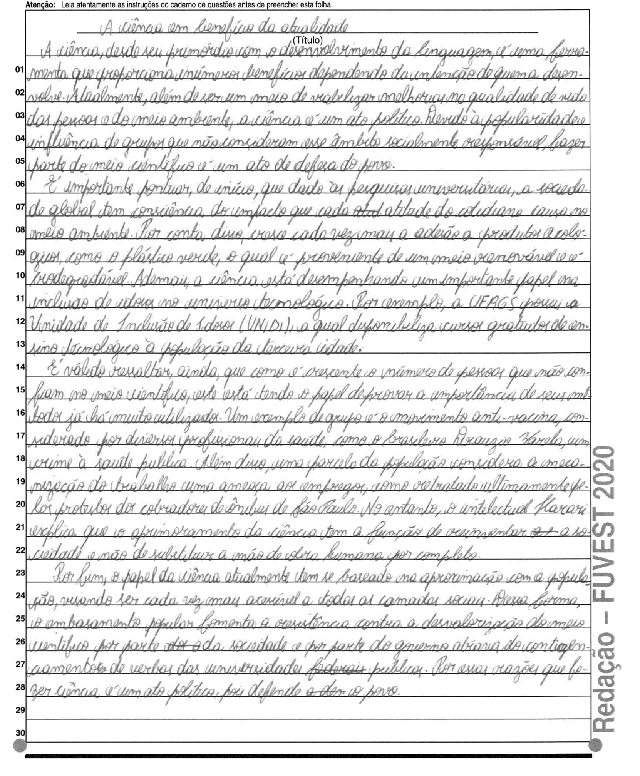 Atenção: Leia atentamente as instruções do caderno de questões antes de preencher esta folha.
A ciência em benefício da atualidade
(Título)
A ciência, desde seu primórdio com o desenvolvimento da linguagem, é uma ferra-
01 menta que proporciona inúmeros benefícios dependendo da intenção de quem a desen-
02 volve. Atualmente, além de ser um meio de viabilizar melhorias na qualidade de vida
03 das pessoas e do meio ambiente, a ciência é um ato político. Devido à popularidade e
04 influência de grupos que não consideram esse âmbito socialmente responsável, fazer
05 parte do meio científico é um ato de defesa do povo.
06 É importante pontuar, de início, que dado às pesquisas universitárias, a socieda-
07 de global tem consciência do impacto que cada atitude do cotidiano causa no
08 meio ambiente. Por conta disso, cresce cada vez mais a adesão a produtos ecoló-
09 gicos, como o plástico verde, o qual é proveniente de um meio renovável e é
10 biodegradável. Ademais, a ciência está desempenhando um importante papel na
11 inclusão de idosos no universo tecnológico. Por exemplo, a UFRGS possui a
12 Unidade de Inclusão de Idosos (UNIDI), a qual disponibiliza cursos gratuitos de en-
13 sino tecnológico à população da terceira idade.
14 É válido ressaltar, ainda, que como é crescente o número de pessoas que não con-
15 fiam no meio científico, este está tendo o papel de provar a importância de seus mé-
16 todos já há muito utilizados. Um exemplo de grupo é o movimento anti-vacina, con-
17 siderado por diversos profissionais da saúde, como o brasileiro Drauzio Varela, um
18 crime à saúde pública. Além disso, uma parcela da população considera a meca-
19 nização do trabalho uma ameaça aos empregos, como retratado ultimamente pe-
20 los protestos dos cobradores de ônibus de São Paulo. No entanto, o intelectual Harari
21 explica que o aprimoramento da ciência tem a função de reinventar a so-
22 ciedade e não de substituir a mão de obra humana por completo.
23 Por fim, o papel da ciência atualmente tem se baseado na aproximação com a popula-
24 ção, visando ser cada vez mais acessível a todas as camadas sociais. Dessa forma,
25 o embasamento popular fomenta a resistência contra a desvalorização do meio
26 científico por parte da sociedade e por parte do governo através do contingen-
27 ciamento de verbas das universidades públicas. Por essas razões que fa-
28 zer ciência é um ato político, pois defende o povo.
29
30
Redação – FUVEST 2020